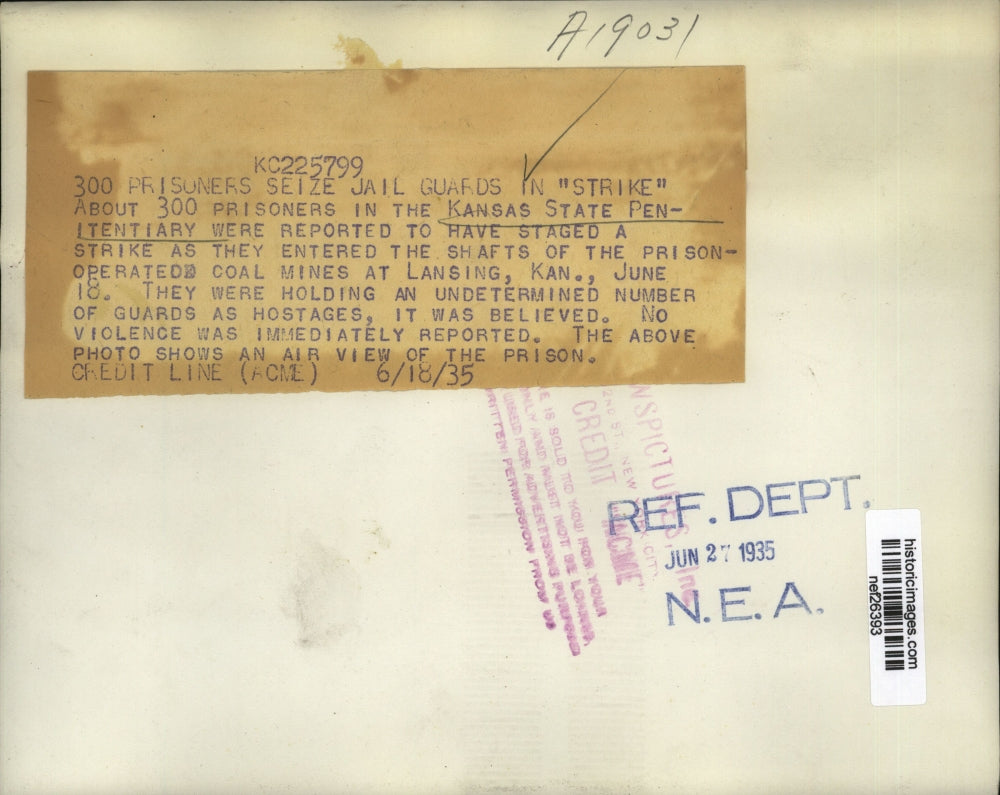 A19031
KC225799
300 PRISONERS SEIZE JAIL GUARDS IN "STRIKE"
ABOUT 300 PRISONERS IN THE KANSAS STATE PEN-
ITENTIARY WERE REPORTED TO HAVE STAGED A
STRIKE AS THEY ENTERED THE SHAFTS OF THE PRISON-
OPERATED COAL MINES AT LANSING, KAN., JUNE
18. THEY WERE HOLDING AN UNDETERMINED NUMBER
OF GUARDS AS HOSTAGES, IT WAS BELIEVED. NO
VIOLENCE WAS IMMEDIATELY REPORTED. THE ABOVE
PHOTO SHOWS AN AIR VIEW OF THE PRISON.
CREDIT LINE (ACME) 6/18/35
WSPICTURES Inc
2ND ST., NEW YORK CITY.
CREDIT "ACME"
E IS SOLD TO YOU FOR YOUR
ONLY AND MUST NOT BE LOANED,
USED FOR ADVERTISING PURPOSES
RITTEN PERMISSION FROM US
REF. DEPT.
JUN 27 1935
N.E.A.
historicimages.com
nef26393